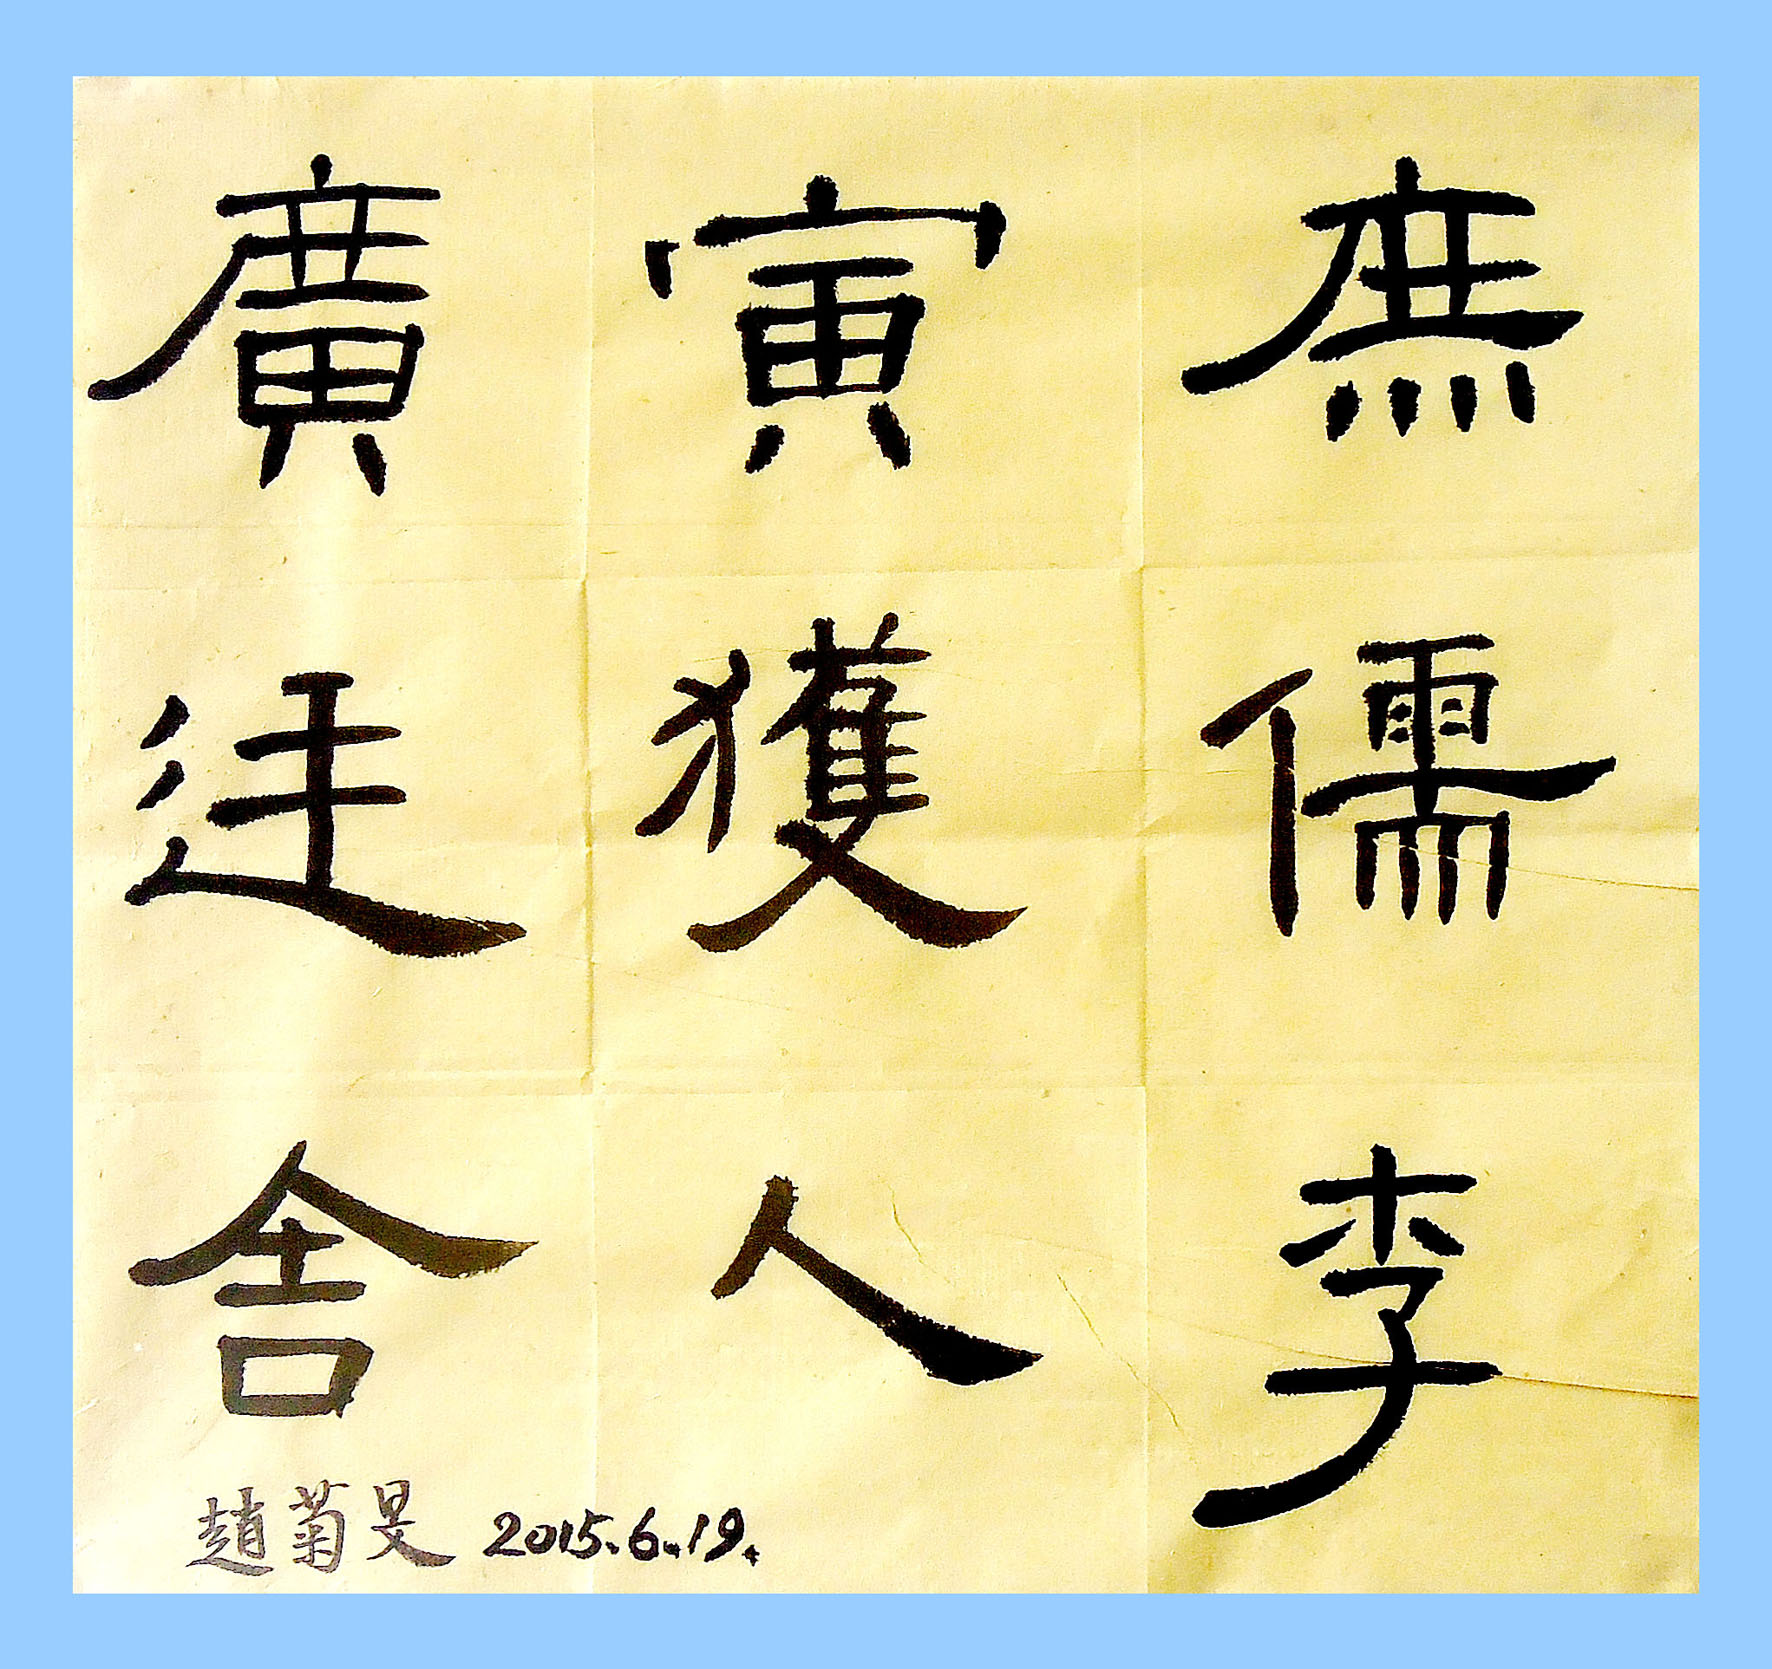 庶儒李
寅獲人
廣廷舍
趙菊旻 2015.6.19.